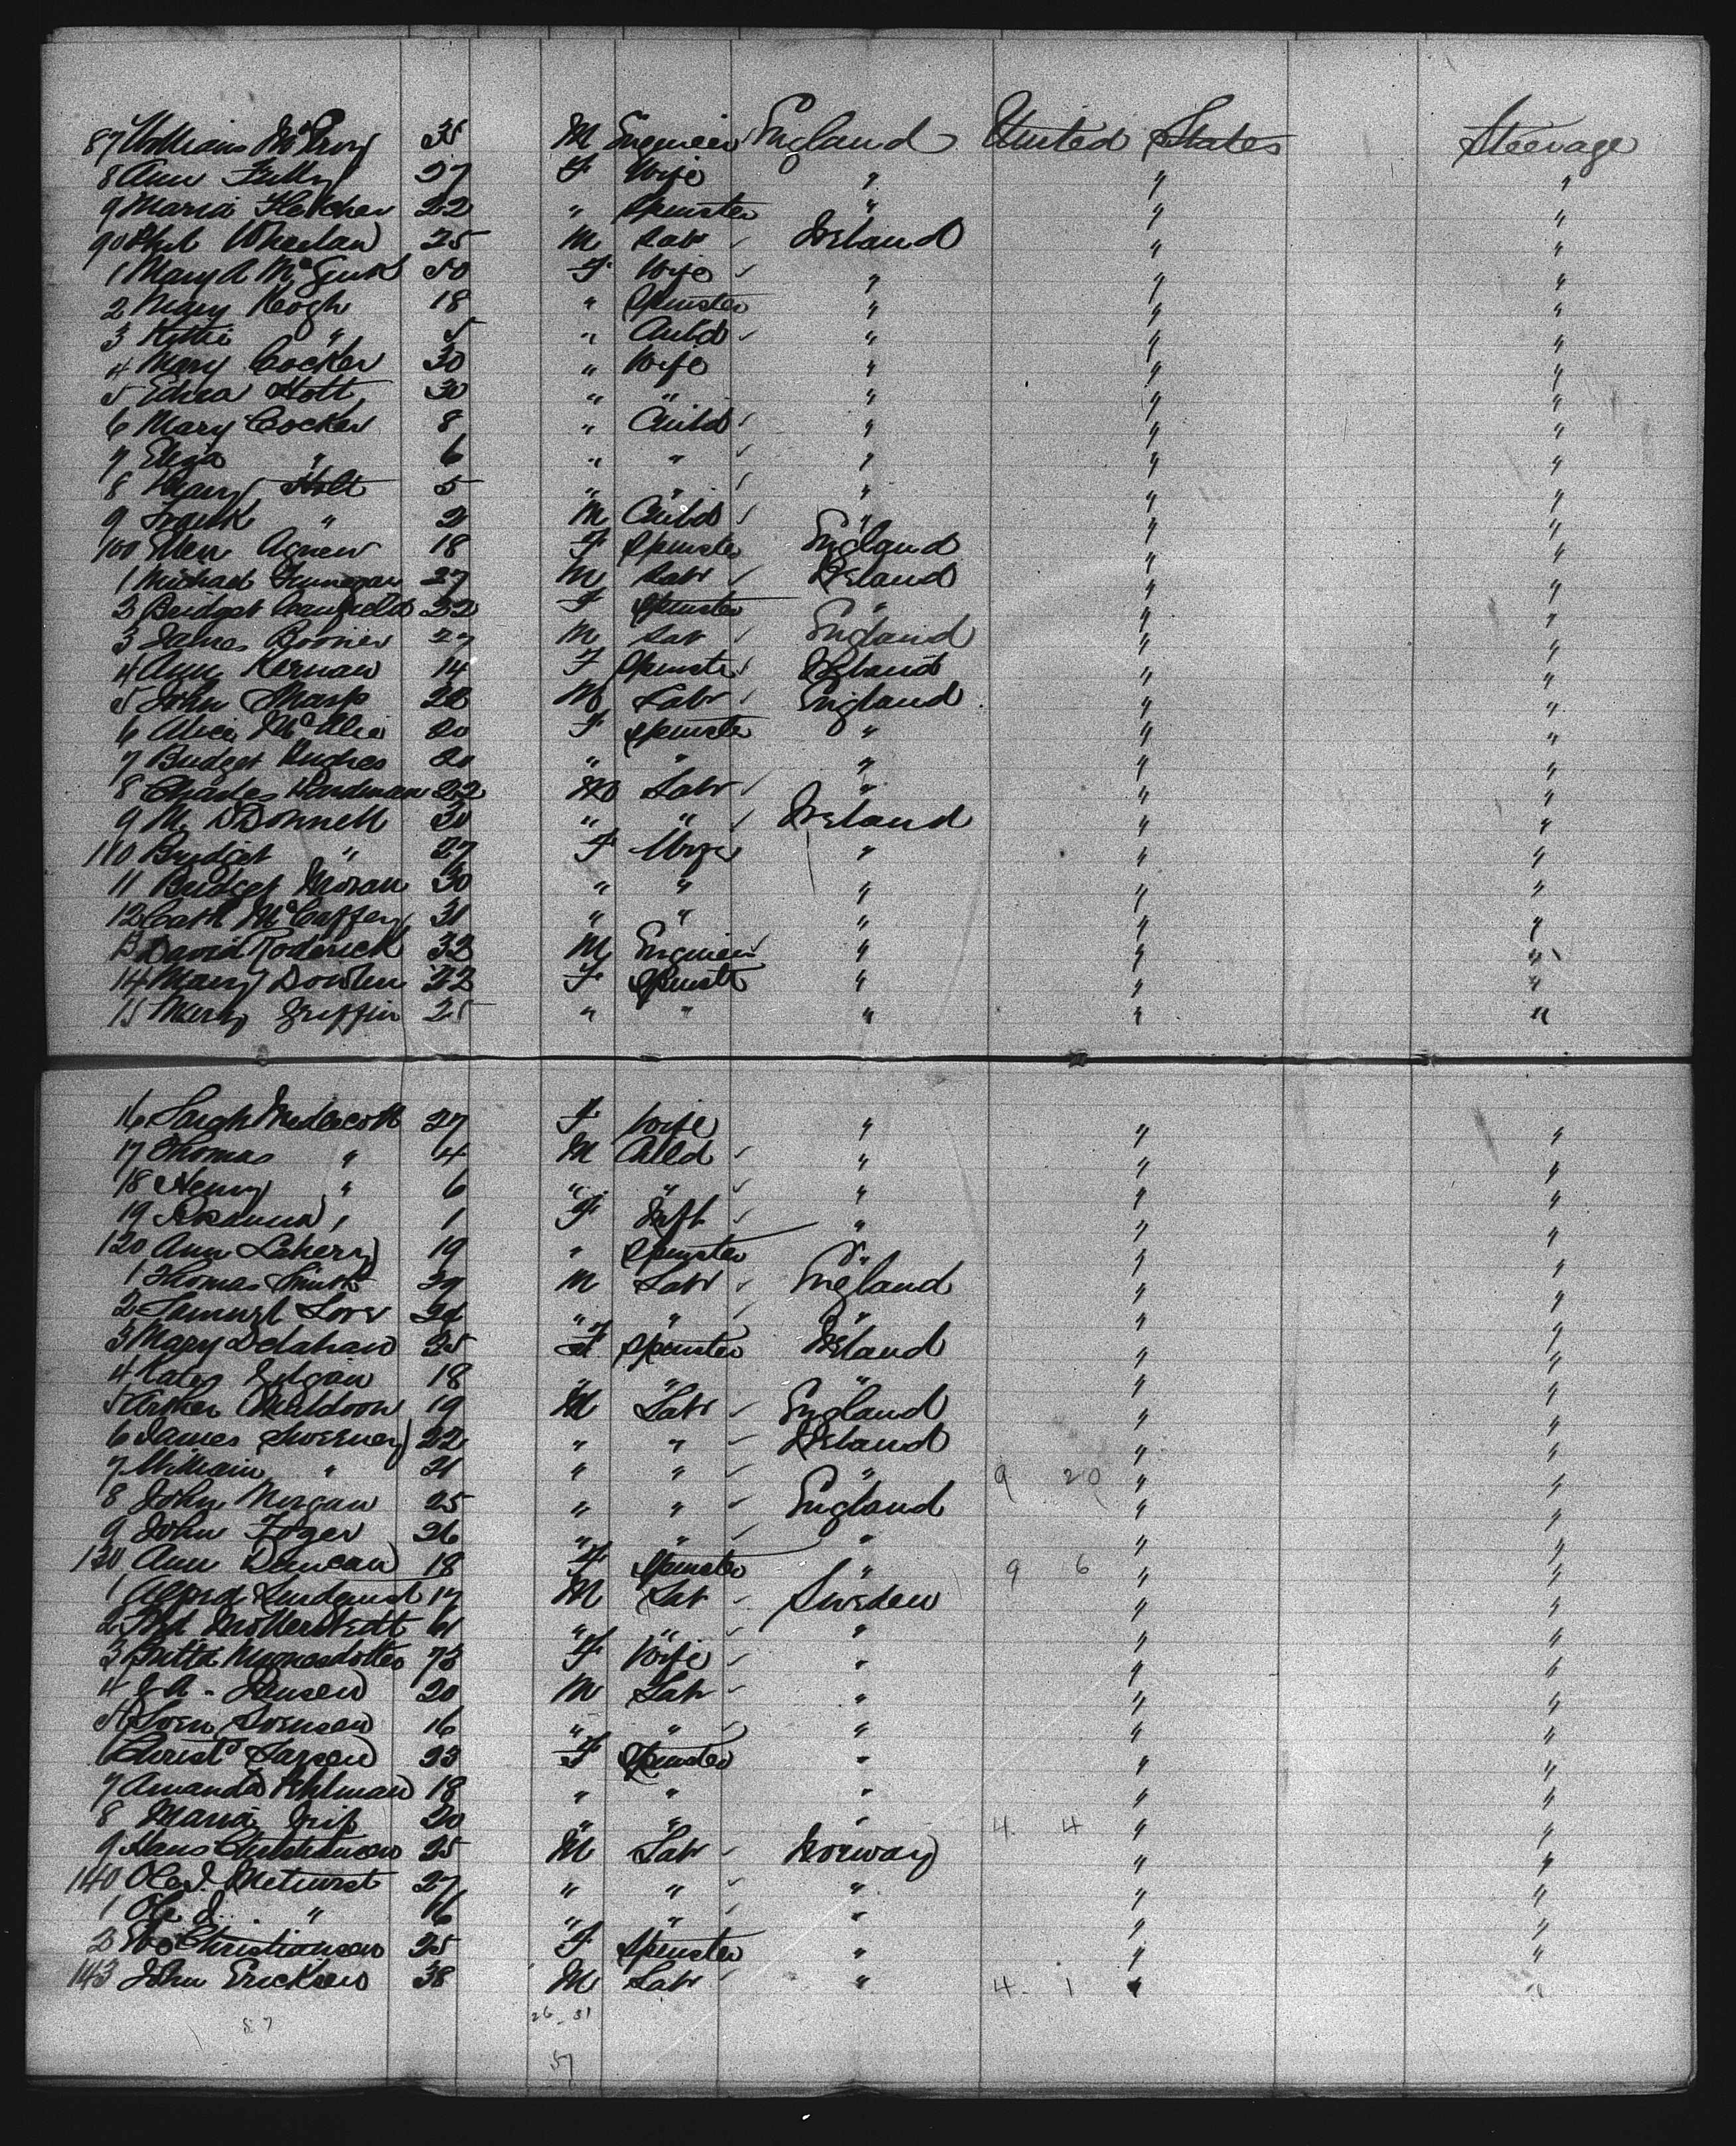 87 William McElroy 35 M Engineer England United States Steerage
8 Ann Fully 27 F Wife " " "
9 Maria Fletcher 22 " Spinster " " "
90 Phil Whelan 25 M Lab Ireland " "
1 Mary A McGurk 50 F Wife " " "
2 Mary Keogh 18 " Spinster " " "
3 Kittie " 5 " Child " " "
4 Mary Cocker 30 " Wife " " "
5 Edna Holt 30 " " " " "
6 Mary Cocker 8 " Child " " "
7 Eliza " 6 " " " " "
8 Mary Holt 5 " " " " "
9 Frank " 2 M Child " " "
100 Ellen Agnew 18 F Spinster England " "
1 Michael Finnegan 27 M Labr Ireland " "
2 Bridget Canfield 22 F Spinster " " "
3 James 27 M Lab England " "
4 Ann Kernan 14 F Spinster Ireland " "
5 John Sharp 28 M Labr England " "
6 Alice 20 F Spinster " " "
7 Bridget Hughes 20 " " " " "
8 Charles Hardman 22 M Labr " " "
9 M. O'Donnell 30 " " Ireland " "
110 Bridget " 27 F Wife " " "
11 Bridget Moran 30 " " " " "
12 Cath McCaffery 31 " " " " "
13 David Roderick 32 M Engineer " " "
14 Mary 22 F Spinstr " " "
15 Mary Griffin 25 " " " " "
16 Sarah 27 F Wife " " "
17 Thomas " 4 M Child " " "
18 Henry " 6 " " " " "
19 " 1 F Inft " " "
120 Ann 19 " Spinster " " "
1 Thomas Smith 39 M Labr England " "
2 Samuel 24 " " " " "
3 Mary Delahan 25 F Spinster Ireland " "
4 Kate 18 " " " " "
5 Arther Muldoon 19 M Labr England " "
6 James Sweeney 22 " " Ireland " "
7 William " 21 " " " 9 20 " "
8 John Morgan 25 " " England " "
9 John 26 " " " " "
130 Ann Duncan 18 F Spinster " 9 6 " "
1 Alfred Lindquist 17 M Lab Sweden " "
2 61 " " " " "
3 73 F Wife " " "
4 J A - Jensen 20 M Lab " " "
5 Soren Sorensen 16 " " " " "
6 Larsen 23 F Spinster " " "
7 Amanda Ahlman 18 " " " " "
8 Maria 20 " " " 4 4 " "
9 Hans Christiansen 25 M Labr Norway " "
140 Ole J. 27 " " " " "
1 Ole J. " 16 " " " " "
2 Christiansen 25 F Spinster " " "
143 John Ericksen 38 M Labr " 4 1 " "
57 26 - 31
57